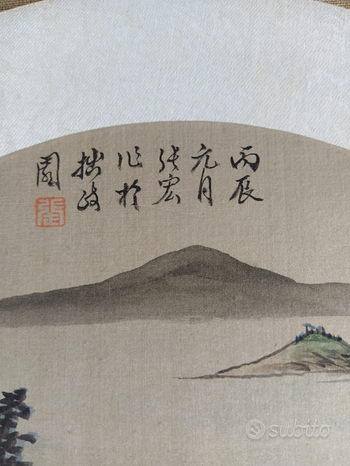 丙辰
元月
張宏
作於
拙政
園
subito